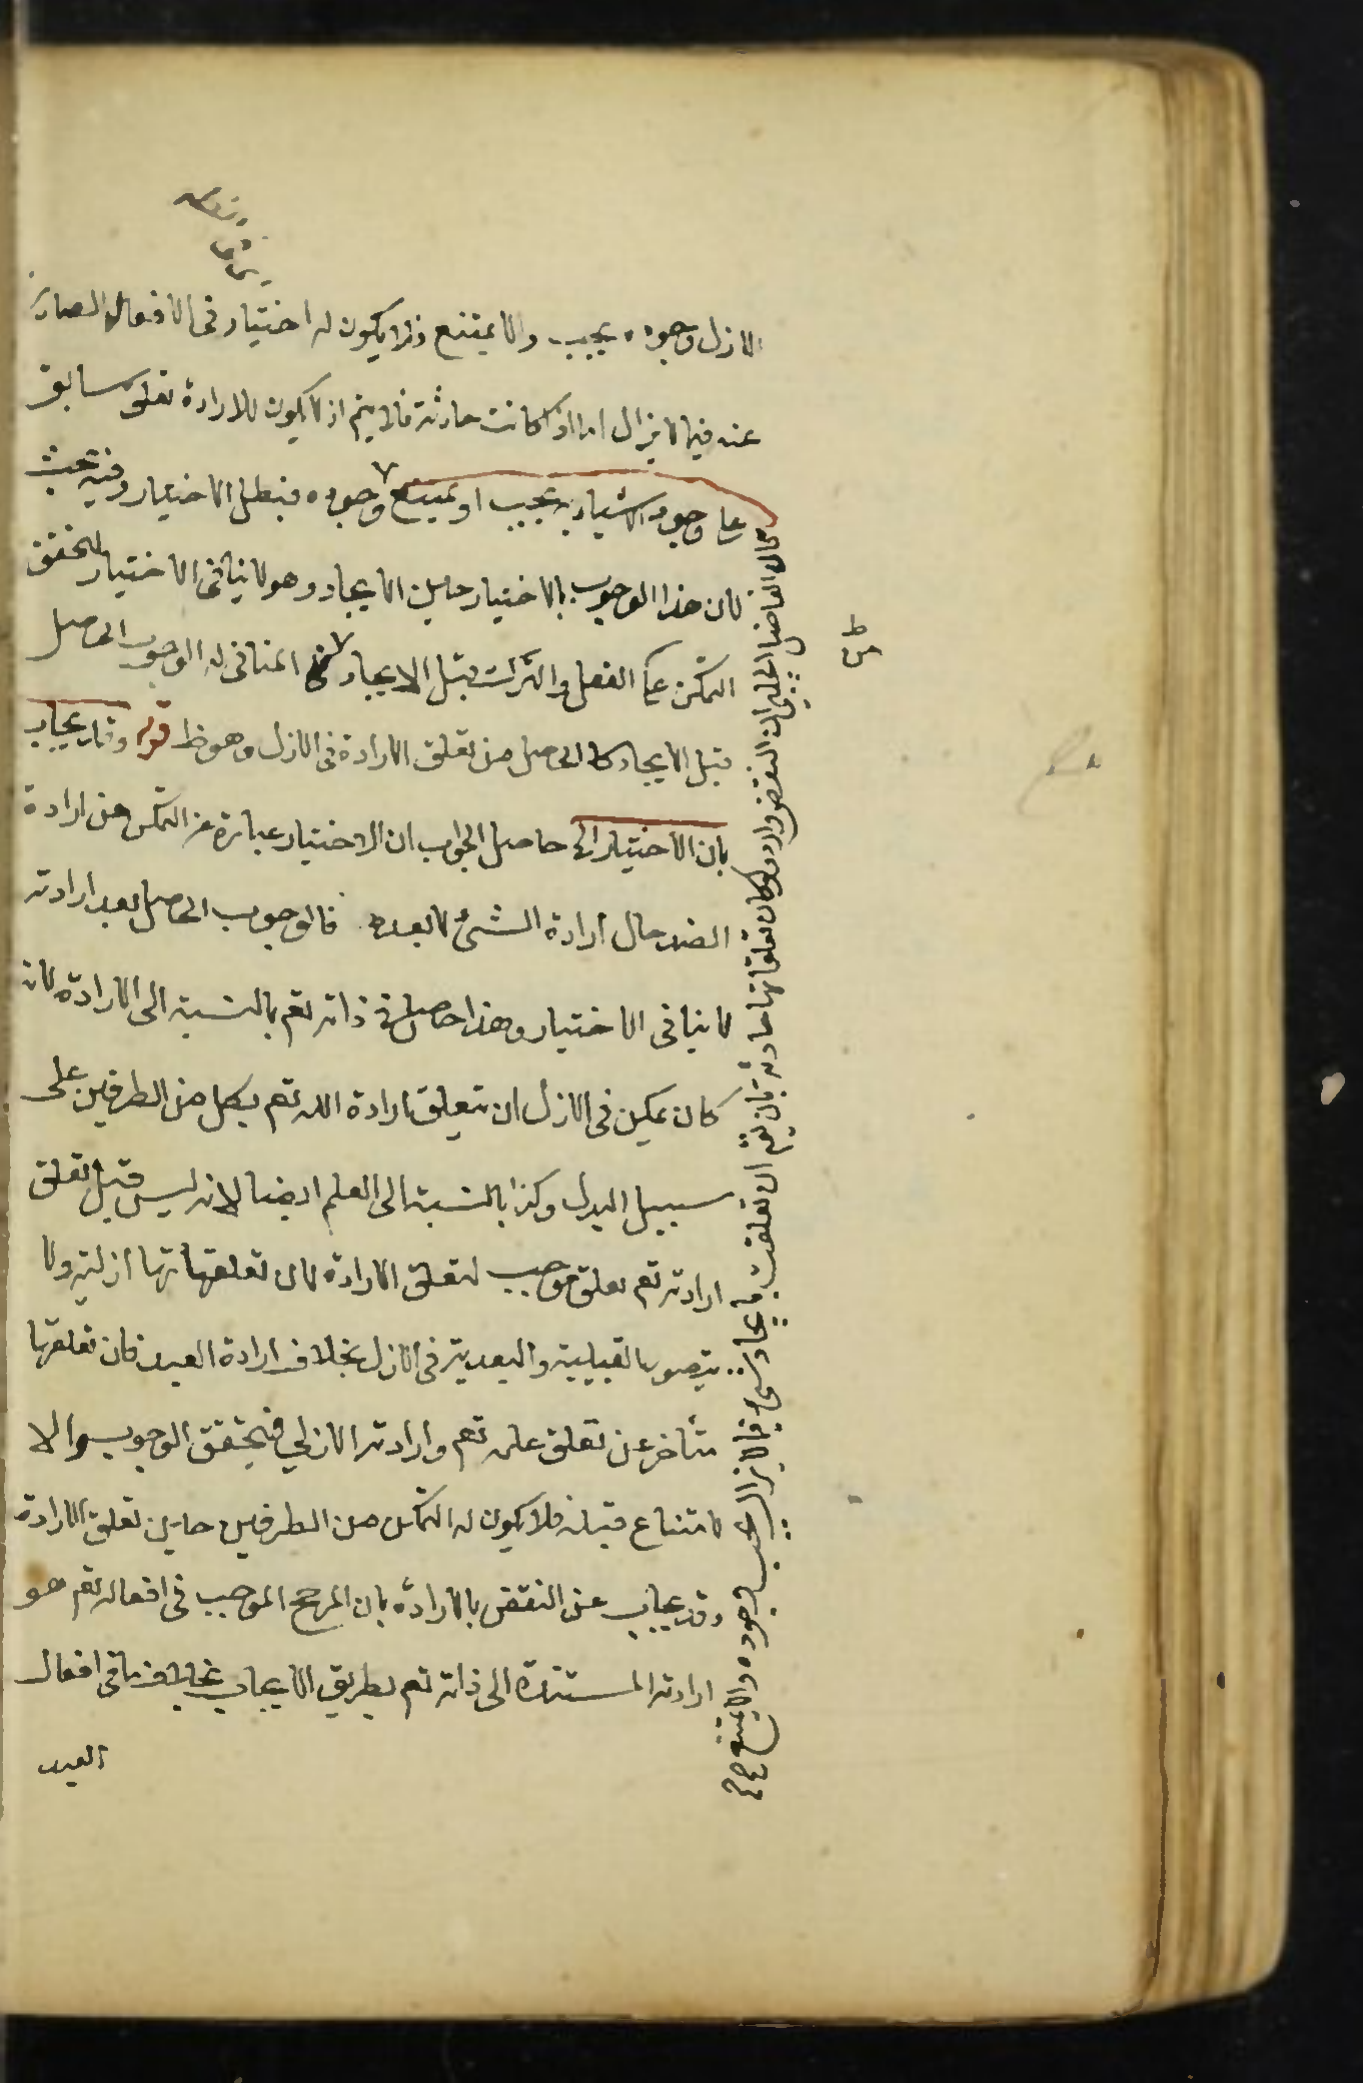 الازل وجوده يجب والا يمتنع فلا يكون له اختيار فى الافعال الصادرة
عنه فيما لا يزال اما اذا كانت حادثة فلا يتم اذ لا يكون للارادة تعلق سابق
على وجود الاشياء به يجب او يمتنع وجوده فيبطل الاختيار وفيه بحث
لان هذا الوجوب بالاختيار حين الايجاد وهو لا ينافى الاختيار لتحقق
التمكن على الفعل والترك قبل الايجاد المنافى له الوجوب الحاصل
قبل الايجاد كالحاصل من تعلق الارادة فى الازل وهو ظ قوله وقد يجاب
بان الاختيار الخ حاصل الجواب ان الاختيار عبارة عن التمكن من ارادة
الضد حال ارادة الشئ لا بعده فالوجوب الحاصل بعد ارادته
لا ينافى الاختيار وهذا حاصل فى ذاته تعم بالنسبة الى الارادة لانه
كان يمكن فى الازل ان يتعلق ارادة الله تعم بكل من الطرفين على
سبيل البدل وكذا بالنسبة الى العلم ايضا لانه ليس قبل تعلق
ارادته تعم تعلق موجب لتعلق الارادة لان تعلقاتها ازلية ولا
يتصور القبلية والبعدية فى الازل بخلاف ارادة العبد فان تعلقها
متأخر عن تعلق علمه تعم وارادته الازلى فيتحقق الوجوب والا
لامتناع قبله فلا يكون له التمكن من الطرفين حين تعلق الارادة
وقد يجاب عن النقض بالارادة بان المرجح الموجب فى افعاله تعم هو
ارادته المستندة الى ذاته تعم بطريق الايجاب بخلاف ما فى افعال
العبد
قال الفاضل الجلبى ان النقض وارد ولو كان تعلقاتها حادثة بان يقم ان تعلقت بايجاد شئ فيما لا يزال يجب وجوده والا يمتنع